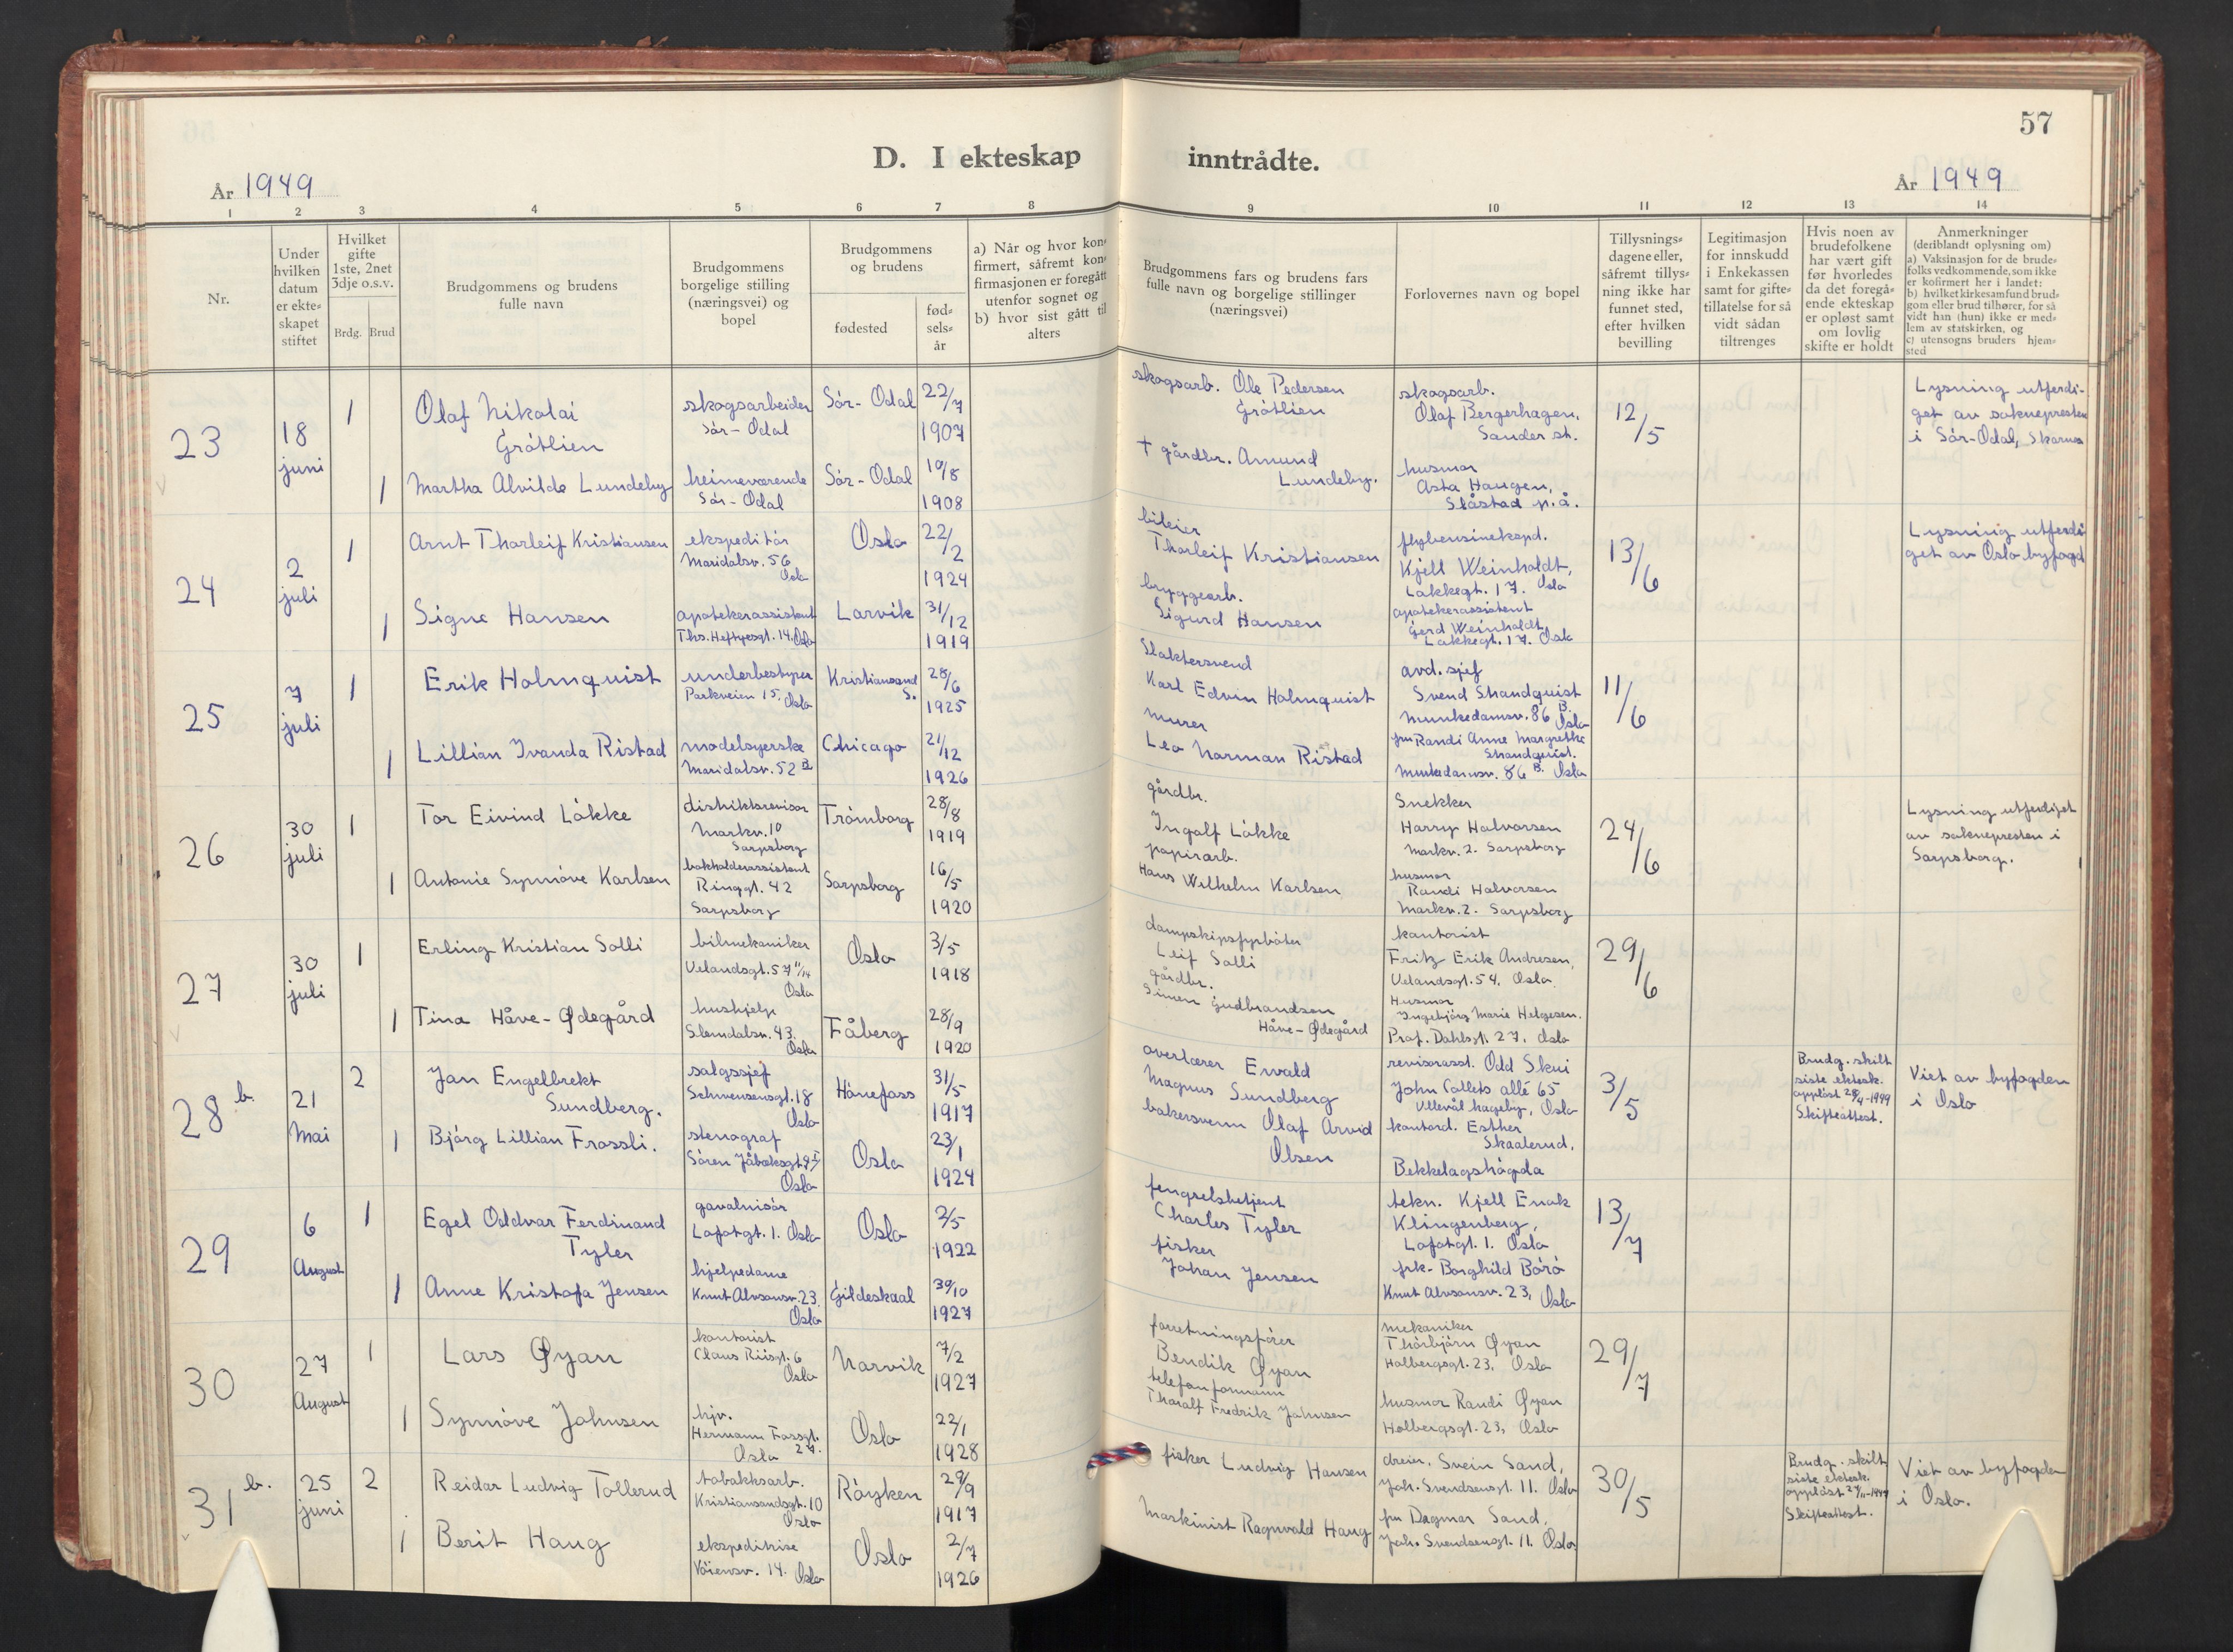 57
D. I ekteskap inntrådte.
År 1949
År 1949
1 2 3 4 5 6 7 8 9 10 11 12 13 14
Nr.
Under hvilken datum er ekteskapet stiftet
Hvilket gifte 1ste, 2net 3dje o.s.v.
Brdg. Brud
Brudgommens og brudens fulle navn
Brudgommens borgelige stilling (næringsvei) og bopel
Brudgommens og brudens
fødested
fødselsår
a) Når og hvor konfirmert, såfremt konfirmasjonen er foregått utenfor sognet og b) hvor sist gått til alters
Brudgommens fars og brudens fars fulle navn og borgelige stillinger (næringsvei)
Forlovernes navn og bopel
Tillysningsdagene eller, såfremt tillysning ikke har funnet sted, efter hvilken bevilling
Legitimasjon for innskudd i Enkekassen samt for giftetillatelse for så vidt sådan tiltrenges
Hvis noen av brudefolkene har vært gift før hvorledes da det foregående ekteskap er opløst samt om lovlig skifte er holdt
Anmerkninger (deriblandt oplysning om) a) Vaksinasjon for de brudefolks vedkommende, som ikke er kofirmert her i landet: b) hvilket kirkesamfund brudgom eller brud tilhører, for så vidt han (hun) ikke er medlem av statskirken, og c) utensogns bruders hjemsted
23
18 juni
1
Olaf Nikolai Gråtlien
skogsarbeider Sør-Odal
Sør-Odal
22/7 1907
skogsarb. Ole Pedersen Gråtlien
skogsarb. Olaf Bergerhagen, Sander st.
12/5
Lysning utferdiget av soknepresten i Sør-Odal, Skarnes
1
Martha Alvilde Lundeby
heimeværende Sør-Odal
Sør-Odal
10/8 1908
† gårdbr. Amund Lundeby.
husmor Asta Haugen, Slåstad p.å.
24
2 juli
1
Arnt Thorleif Kristiansen
ekspeditør Maridalsv. 56 Oslo
Oslo
22/2 1924
bileier Thorleif Kristiansen
flybensinekspd. Kjell Weinholdt, Lakkegt. 17. Oslo
13/6
Lysning utferdiget av Oslo byfogd
1
Signe Hansen
apotekerassistent Ths. Heftyesgt. 14. Oslo
Larvik
31/12 1919
bryggearb. Sigurd Hansen
apotekerassistent Gerd Weinholdt, Lakkegt. 17. Oslo
25
7 juli
1
Erik Holmquist
underbestyrer Parkveien 15, Oslo
Kristiansand S.
28/6 1925
Slaktersvend Karl Edvin Holmquist
avd. sjef Svend Strandquist Munkedamsv. 86 B. Oslo
11/6
1
Lillian Ivanda Ristad
modelsyerske Maridalsv. 52 B
Chicago
21/12 1926
murer Leo Norman Ristad
fru Randi Anne Margrethe Strandquist. Munkedamsv. 86 B. Oslo
26
30 juli
1
Tor Eivind Løkke
distriktsrevisor Markv. 10 Sarpsborg
Trømborg
28/8 1919
gårdbr. Ingolf Løkke
Snekker Harry Halvorsen Markv. 2. Sarpsborg
24/6
Lysning utferdiget av soknepresten i Sarpsborg.
1
Antonie Synnøve Karlsen
bokholderassistent Ringgt. 42 Sarpsborg
Sarpsborg
16/5 1920
papirarb. Hans Wilhelm Karlsen
husmor Randi Halvorsen Markv. 2. Sarpsborg
27
30 juli
1
Erling Kristian Solli
bilmekaniker Velandsgt. 57 Oslo
Oslo
3/5 1918
dampskipsfyrbøter Leif Solli
kontorist Fritz Erik Andresen, Velandsgt. 54, Oslo
29/6
1
Tina Håve-Ødegård
hushjelp Slemdalsv. 43. Oslo
Fåberg
28/9 1920
gårdbr. Simen Gudbrandson Håve-Ødegård
Husmor Ingebjørg Marie Helgesen. Prof. Dahlsgt. 27, Oslo
28 b.
21 Mai
2
Jan Engelbrekt Sundberg.
salgssjef Schwensensgt. 18 Oslo
Hønefoss
31/5 1917
overlærer Ewald Magnus Sundberg
revisorasst. Odd Skui John Colletts allé 65 Ullevål hageby, Oslo
3/5
Brudg. skilt siste ektesk. oppløst 28/4-1949 Skifteattest.
Viet av byfogden i Oslo
1
Bjørg Lillian Frossli.
stenograf Søren Jåbæksgt. 9 I Oslo
Oslo
23/1 1924
bakersvenn Olaf Arvid Olsen
kontord. Esther Skaalerud, Bekkelagshøgda
29
6 August
1
Egel Oddvar Ferdinand Tyler
Lofotgt. 1. Oslo
Oslo
2/5 1922
fengselsbetjent Charles Tyler
tekn. Kjell Enok Klingenberg, Lofotgt. 1. Oslo
13/7
1
Anne Kristofa Jensen
hjelpedame Knut Alvsonsv. 23. Oslo
Gildeskaal
30/10 1927
fisker Johan Jensen
frk. Borghild Børø Knut Alvsonsv. 23, Oslo
30
27 August
1
Lars Øyan
kontorist Claus Riisgt. 6 Oslo
Narvik
7/2 1927
forretningsfører Bendik Øyan
mekaniker Thorbjørn Øyan Holbergsgt. 23, Oslo
29/7
1
Synnøve Johnsen
hjv. Hermann Fossgt. 27. Oslo
Oslo
22/1 1928
telefonformann Tharalf Fredrik Johnsen
husmor Randi Øyan Holbergsgt. 23, Oslo
31 b.
25 juni
2
Reidar Ludvig Tollerud
tobakksarb. Kristiansandsgt. 10 Oslo
Røyken
29/9 1917
fisker Ludvig Hansen
dreier. Svein Sand, Joh. Svendsensgt. 11. Oslo
30/5
Brudg. skilt siste ektesk. oppløst Skifteattest.
Viet av byfogden i Oslo.
1
Berit Haug
ekspeditrise Vøiensv. 14. Oslo
Oslo
2/7 1926
Maskinist Ragnvald Haug
fru Dagmar Sand, Joh. Svendsensgt. 11. Oslo